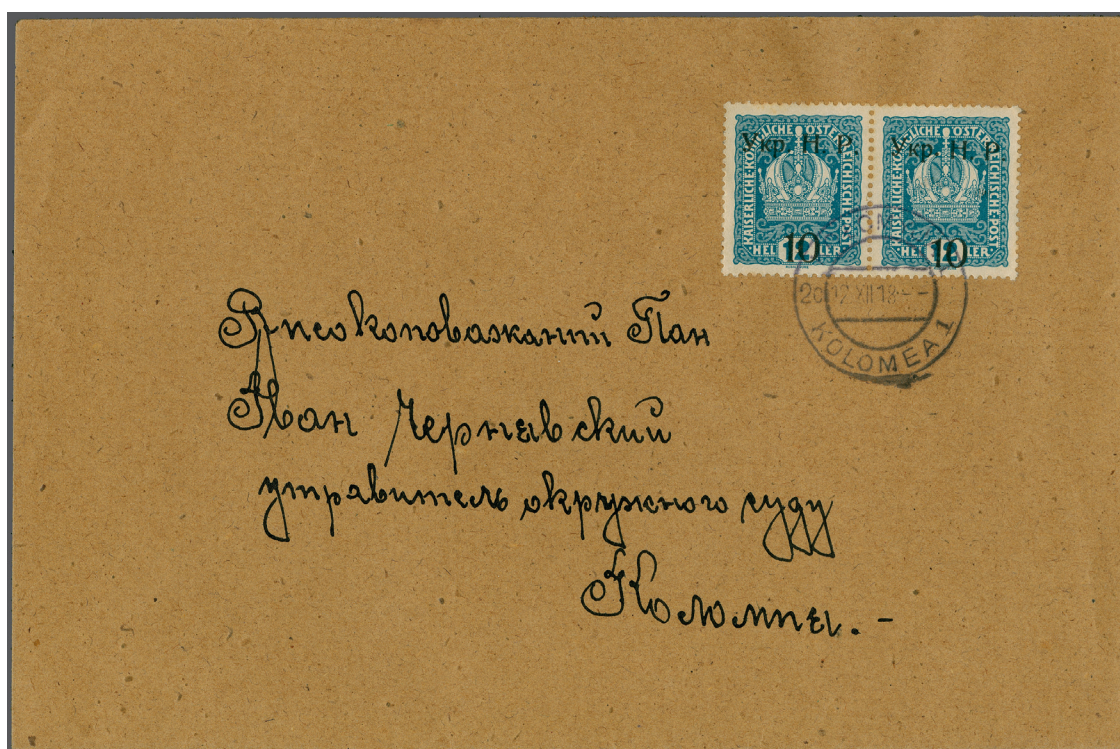 KAISERLICHE KÖNIGLICHE ÖSTERREICHISCHE POST
Укр. Н. Р.
10
HELLER
KAISERLICHE KÖNIGLICHE ÖSTERREICHISCHE POST
Укр. Н. Р.
10
HELLER
12 XII 18
KOLOMEA 1
Високоповажаний Пан
Іван Чернявский
управитель окружного суду
Коломия.-